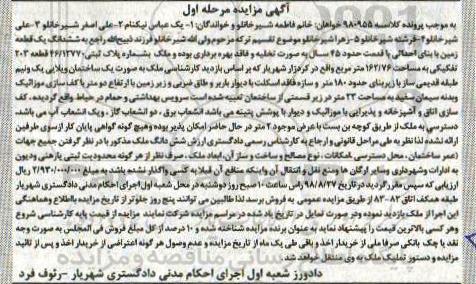 آگهی مزایده مرحله اول
به موجب پرونده کلاسه 980955 خواهان: خانم فاطمه شیرخانلو و خواندگان: 1-یک عباس نیکنام 2-علی اصغر شیرخانلو 3-علی
شیرخانلو 4-خرشته شیرخانلو 5-زهرا شیرخانلو موضوع تقسیم ترکه مرحوم ولی الله شیرخانلو فرزند ذبیح الله راجع به ششدانگ یک قطعه
زمین با بنای احداثی با قدمت حدود 45 سال به صورت تخلیه و فاقد بهره برداری بوده و ملک بشماره پلاک ثبتی 46/1277 قطعه 203
تفکیکی به مساحت 162/76 متر مربع واقع در کردزار شهریار که بر اساس بازدید کارشناسی ملک به صورت یک ساختمان ویلایی یک ونیم
طبقه قدیمی ساز با زیربنای حدود 180 متر و سازه فاقد اسکلت با دیوار باربر و طاق ضربی و زیر زمین با ارتفاع دو متر با کف سازی موزائیک
وبدنه سیمان سفید به مساحت 23 متر در زیر قسمتی از ساختمان تعبیه شده است سرویس بهداشتی و حمام در حیاط واقع گردیده. کف
سازی اتاق و آشپزخانه و پذیرایی با موزائیک و دیوار با پوشش پتینه می باشد انشعاب برق، دو انشعاب گاز، ویک انشعاب آب می باشد.
دسترسی به ملک از طریق کوچه بن بست با عرض موجود 2 متر در حال حاضر امکان پذیر بوده و هیچ گونه گواهی پایان کار از سوی طرفین
ارائه نشده لذا نظر به طی مراحل قانونی و ارجاع به کارشناس رسمی دادگستری ارزش شش دانگ ملک مذکور با در نظر گرفتن جمیع جهات
(عمر ساختمان، محل دسترسی، امکانات، نوع مصالح و ساخت و ساز آن، ابعاد ملک)، صرف نظر از هر گونه محدودیت ثبتی یارهنی ودیون
به ادارات وشهرداری وسایر ارگان ها ومنع نقل و انتقال آن واینکه منافع آن قبلا به کسی واگذار نشده باشد به مبلغ 2/930/000/000 ریال
ارزیابی که سپس مقرر گردید در تاریخ 98/8/27 راس ساعت 10 صبح روز دوشنبه در محل شعبه اول اجرای احکام مدنی دادگستری شهریار
طبقه همکف اتاق 82-83 از طریق مزایده عمومی به فروش برسد لذا طالبین می توانند پنج روز جلوتر از تاریخ مزایده بااطلاع وهماهنگی
این اجرا از ملک بازدید نموده ودر صورت تمایل در تاریخ یاد شده در مراسم مزایده شرکت نمایند مزایده از قیمت پایه کارشناسی شروع
وهر کسی بالاترین قیمت را پیشنهاد نماید به عنوان برنده مزایده شناخته شده و 10 درصد از کل مبلغ فروش فی المجلس به صورت وجه
نقد یا چک بانکی صرفا ملی از خریدار اخذ و باقی طی یک ماه از تاریخ مزایده و عدم وصول هر گونه اعتراضی از خریدار اخذ و پس از تائید
مزایده و دستور تملیک ملک به وی منتقل خواهد شد
دادورز شعبه اول اجرای احکام مدنی دادگستری شهریار - رئوف فرد